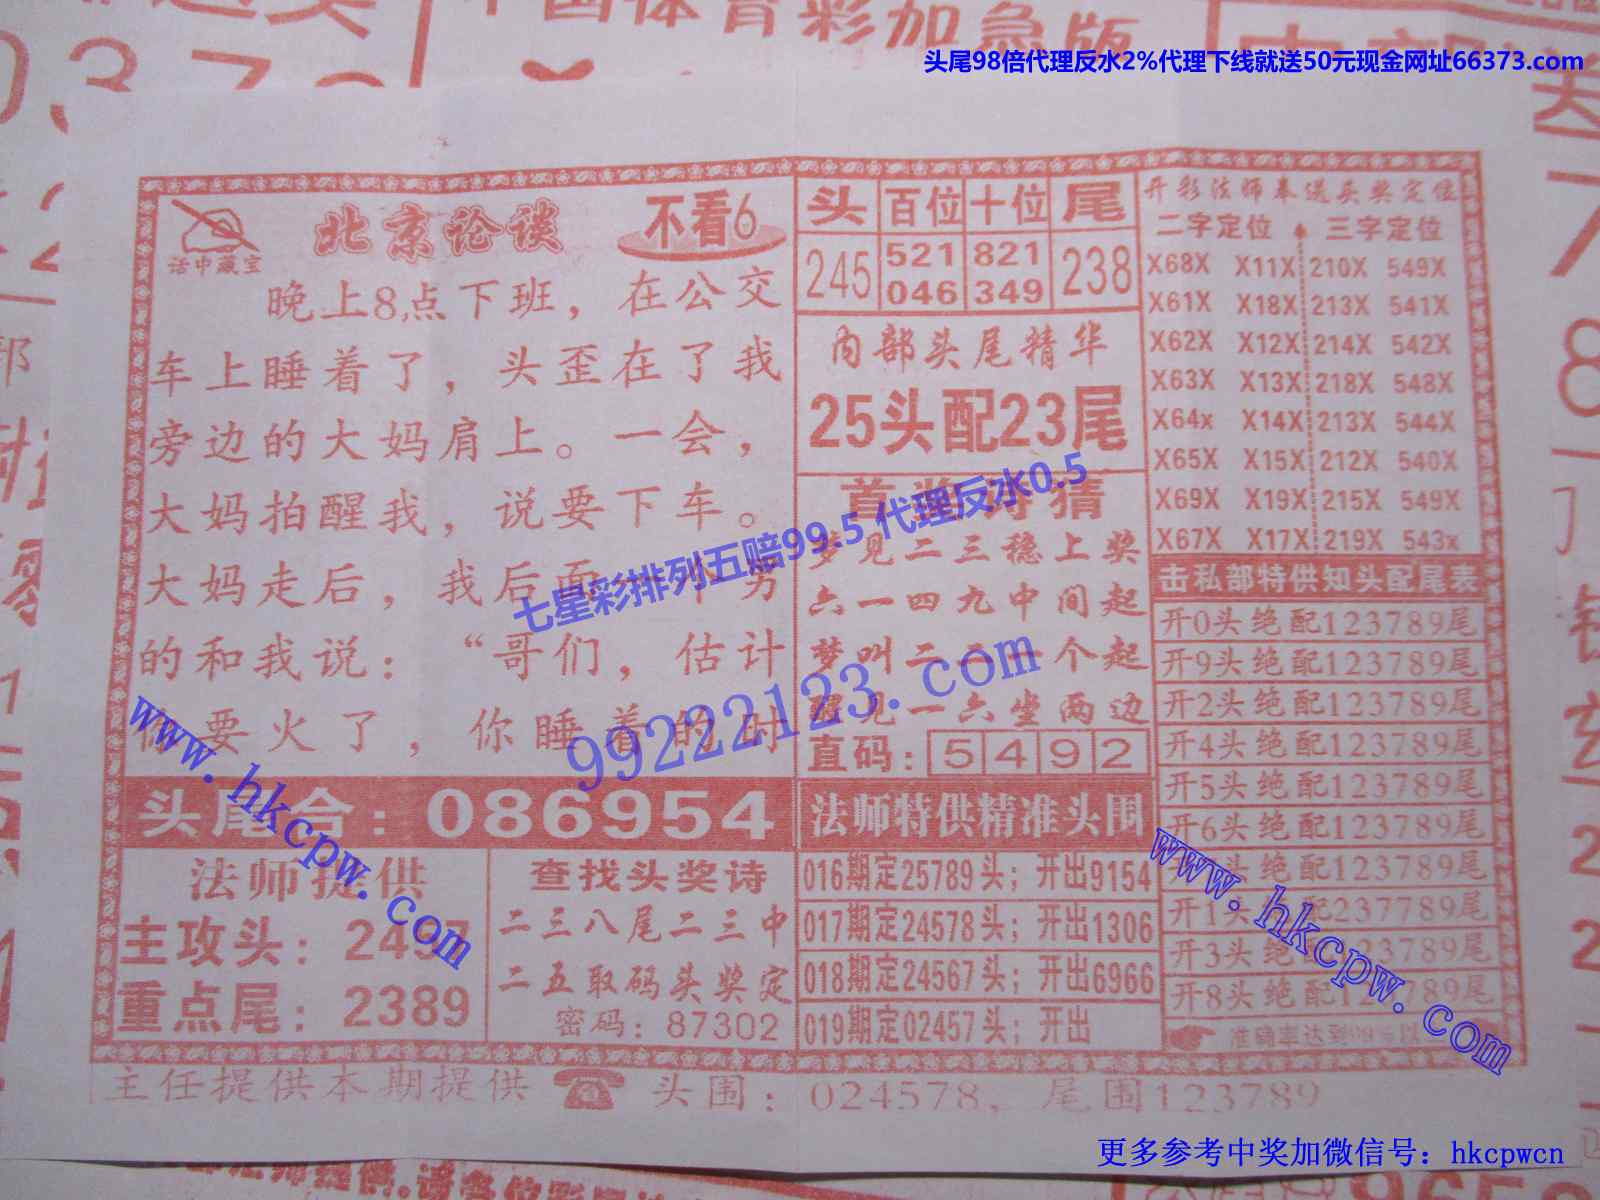 中国体育彩加急版
头尾98倍代理反水2%代理下线就送50元现金网址66373.com
话中藏宝
北京论谈
不看6
晚上8点下班，在公交
车上睡着了，头歪在了我
旁边的大妈肩上。一会，
大妈拍醒我，说要下车。
大妈走后，我后面一个男
的和我说：“哥们，估计
你要火了，你睡着的时
头尾合：086954
法师提供
主攻头：2457
重点尾：2389
查找头奖诗
二三八尾二三中
二五取码头奖定
密码：87302
头 百位 十位 尾
245 521 821 238
046 349
内部头尾精华
25头配23尾
首奖诗猜
梦见二三稳上奖
六一四九中间起
梦叫二八一个起
见一六坐两边
直码：5492
法师特供精准头围
016期定25789头；开出9154
017期定24578头；开出1306
018期定24567头；开出6966
019期定02457头；开出
开彩法师奉送头奖定位
二字定位 三字定位
X68X X11X 210X 549X
X61X X18X 213X 541X
X62X X12X 214X 542X
X63X X13X 218X 548X
X64x X14X 213X 544X
X65X X15X 212X 540X
X69X X19X 215X 549X
X67X X17X 219X 543x
击私部特供知头配尾表
开0头绝配123789尾
开9头绝配123789尾
开2头绝配123789尾
开4头绝配123789尾
开5头绝配123789尾
开6头绝配123789尾
头绝配123789尾
开1头 配237789尾
开3头 123789尾
开8头绝配123789尾
准确率达到
主任提供本期提供 头围：024578，尾围123789
七星彩排列五赔99.5 代理反水0.5
99222123.com
www.hkcpw.com
www.hkcpw.com
更多参考中奖加微信号：hkcpwcn